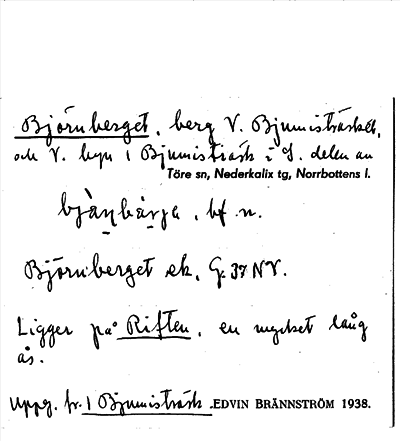 Björnberget, berg V. Bjumisträsket,
och V. byn 1 Bjumisträsk i S. delen av
Töre sn, Nederkalix tg, Norrbottens l.
bjàṇbæ̀rjə, bf. n.
Björnberget ek. G: 37 NV.
Ligger på Riften, en mycket lång
ås.
Uppg. fr. 1 Bjumisträsk. EDVIN BRÄNNSTRÖM 1938.